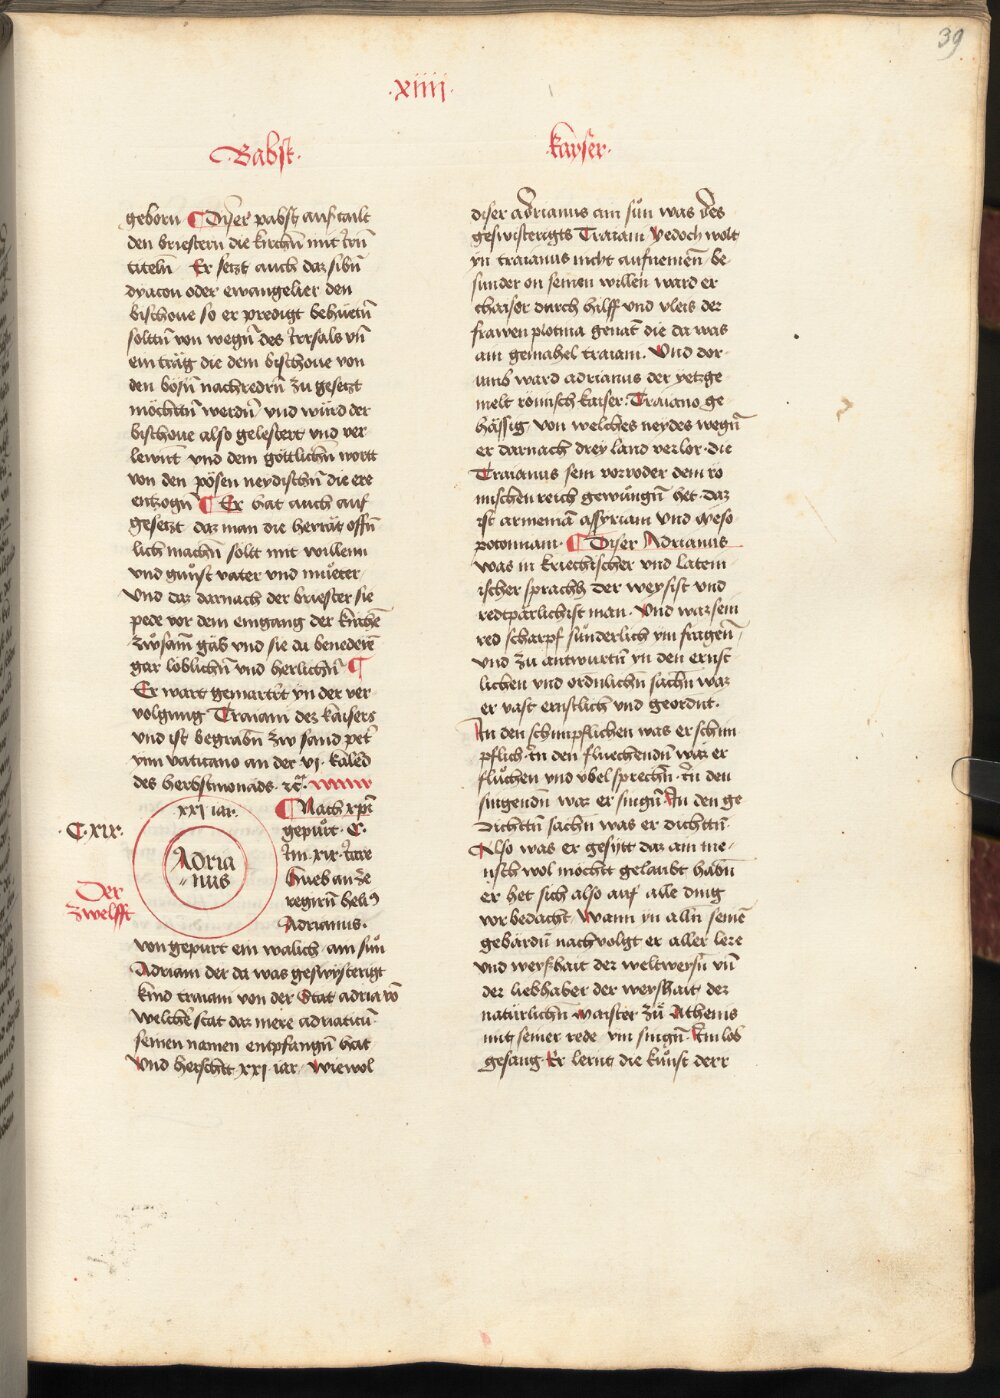 39
·xiiij·
Babst·
kayser·
geborn ¶ Diser pabst auß tailt
den briestern die kirchn̄ mit irn̄
titeln̄ Er setzt auch daz sibn̄
dyacon oder ewangelier den
bischoue so er predigt behuetn̄
soltn̄ von wegn̄ des Irrsals vn̄
ein träg die dem bischoue von
den bösn̄ nachredrn̄ zu gesetzt
möchttn̄ werdn̄ vnd würd der
bischoue also gelestert vnd ver
lewnt vnd dem göttlichn̄ wortt
von den pösen neydischn̄ die ere
entzogn̄ ¶ Er hat auch auf
gesetzt daz man die heyrät offn̄
lich machn̄ solt mit willenn
vnd gunst vater vnd mueter
vnd daz darnach der briester sie
pede vor dem eingang der kirchē
zwsam̄ gäb vnd sie da benedeiē
gar loblichn̄ vnd herlichn̄ ¶
Er wart gemartrt yn der ver
volgung Traiani dez kaisers
vnd ist begrabn̄ zw sand pet
ynn vaticano an der vj· kaled
des herbstmonads· ꝛc̄·
·C·xix·
xxj iar·
Adria
nus
Der
zwelfft
¶ Nach xp̄i
gepurt· C·
Im· xix· iare
hueb an ze
regirn̄ heliꝰ
Adrianus·
von gepurt ein walich ain sun
Adriani der da was geswystergt
kind traiani von der Stat adria vō
welcher stat daz mere adriaticū
seinen namen entpfangn̄ hat
vnd herschtt xxj iar· wiewol
diser adrianus ain sun was des
geswistergts Traiani yedoch wolt
yn traianus nicht aufnemen̄ be
sunder on seinen willen ward er
chaiser durch hilff vnd vleis der
frawen plotina genāt die da was
ain gemahel traiani· Vnd dor
umb ward adrianus der yetzge
melt römisch kaiser· Traiano ge
hässig von welches neydes wegn̄
er darnach drey land verlor· die
Traianus sein vorvoder dem rö
mischen reich gewungn̄ het· daz
ist armeniā assyriam vnd meso
potoniam· ¶ Diser Adrianus
was in kriechischer vnd latein
ischer sprachh der weysist vnd
redtpärlichist man· Vnd waz sein
red scharpf sunderlich ym fragen̄
vnd zu antwurtn̄ yn den ernst
lichen vnd ordnlichn̄ sachn̄ waz
er vast ernstlich vnd geordnt·
In den schimpflichen was er schim
pflich· In den fluechendn̄ waz er
fluchen vnd vbel sprechn̄· In den
singendn̄ waz er singn̄ In den ge
dichttn̄ sachn̄ was er dichttn̄·
Also was er gesytt daz ain me
nsch wol möchtt gelaubt habn̄
er het sich also auf alle ding
vor bedacht· wann yn alln̄ seinē
gebärdn̄ nachvolgt er aller lere
vnd weyßhait der weltweysn̄ vn̄
der liebhaber der weyßhait· der
natürlichn̄ maister zu Athenis
mit seiner rede ym singn̄· Im lob
gesang· Er lernt die kunst derr